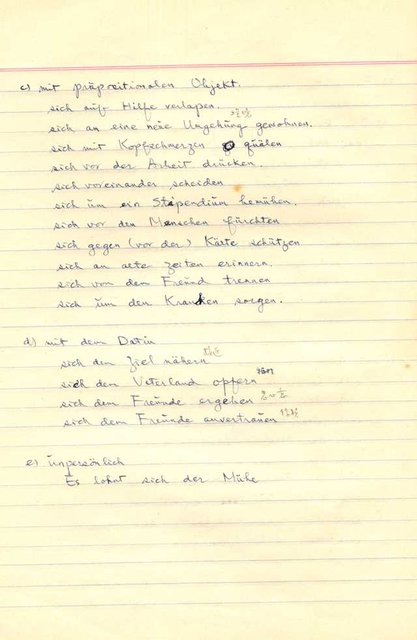 c) mit präpositionalen Objekt.
sich auf Hilfe verlassen.
sich an eine neue Umgebung gewohnen.
sich mit Kopfschmerzen quälen
sich vor der Arbeit drücken.
sich voreinander scheiden
sich um ein Stipendium bemühen.
sich vor den Menschen fürchten
sich gegen (vor der) Kärte schützen
sich an alte Zeiten erinnern.
sich von dem Freund trennen
sich um den Kranken sorgen.
d) mit dem Dativ
sich dem Ziel nähern
sich dem Veterland opfern
sich dem Freunde ergehen
sich dem Freunde anvertrauen
e) unpersönlich
Es lohnt sich der Mühe